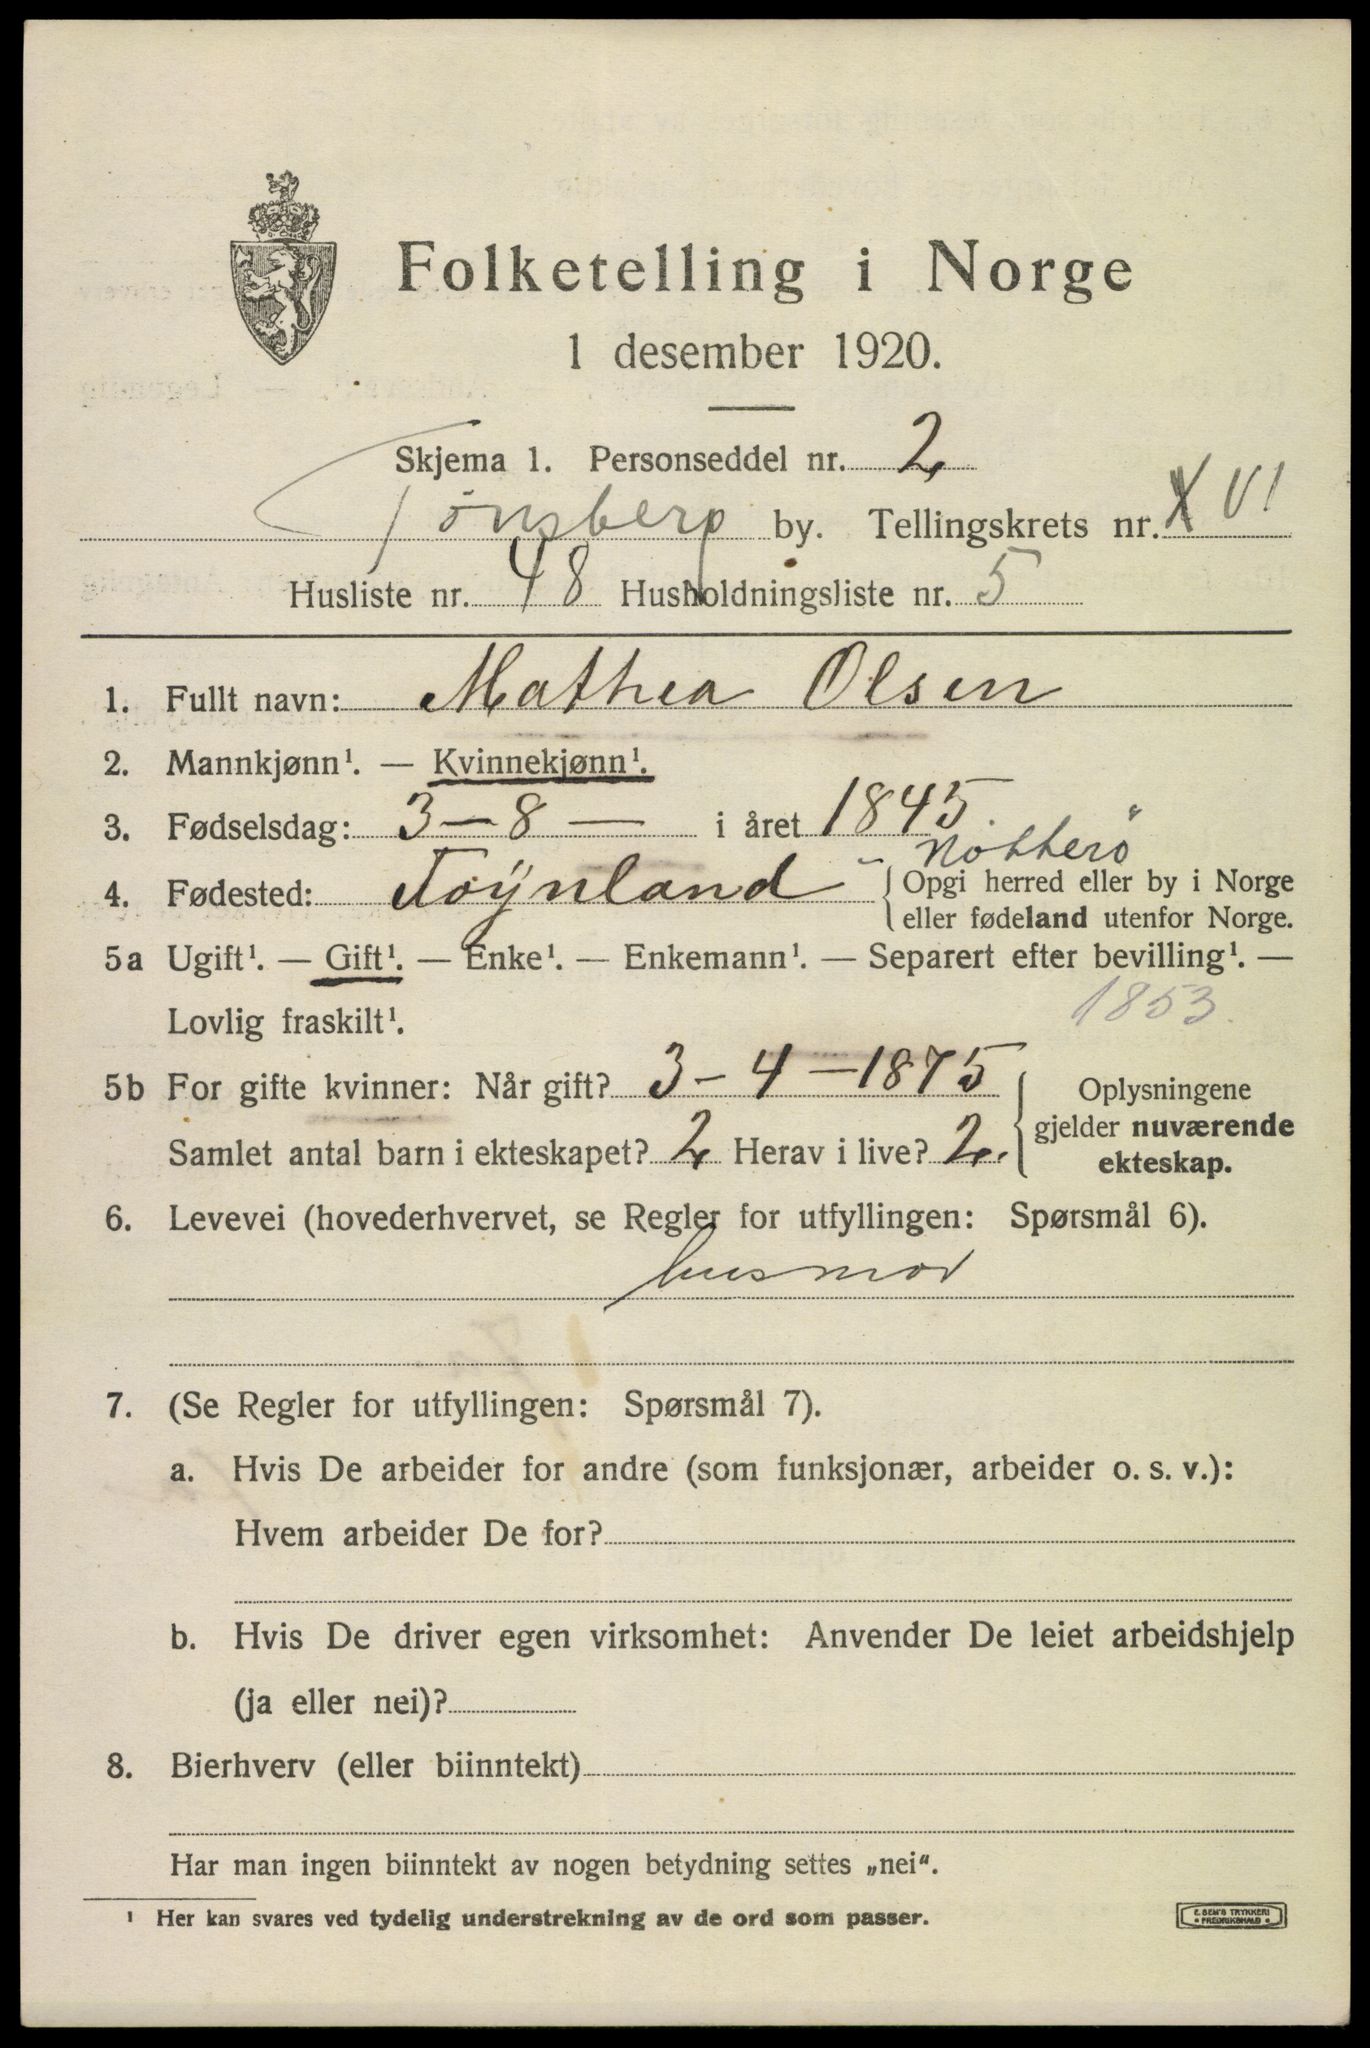 Folketelling i Norge
1 desember 1920.
Skjema 1. Personseddel nr. 2
Tønsberg by. Tellingskrets nr. XVI
Husliste nr. 48 Husholdningsliste nr. 5
1. Fullt navn: Mathea Olsen
2. Mannkjønn¹. — Kvinnekjønn¹.
3. Fødselsdag: 3 — 8 — i året 1845
Nötterö
4. Fødested: Töÿnland { Opgi herred eller by i Norge
eller fødeland utenfor Norge.
5a Ugift¹. — Gift¹. — Enke¹. — Enkemann¹. — Separert efter bevilling¹. —
Lovlig fraskilt¹.
1853.
5b For gifte kvinner: Når gift? 3 – 4 – 1875
Samlet antal barn i ekteskapet? 2 Herav i live? 2.
Oplysningene
gjelder nuværende
ekteskap.
6. Levevei (hovederhvervet, se Regler for utfyllingen: Spørsmål 6).
husmor
7. (Se Regler for utfyllingen: Spørsmål 7).
a. Hvis De arbeider for andre (som funksjonær, arbeider o. s. v.):
Hvem arbeider De for?
b. Hvis De driver egen virksomhet: Anvender De leiet arbeidshjelp
(ja eller nei)?
8. Bierhverv (eller biinntekt)
Har man ingen biinntekt av nogen betydning settes „nei“.
¹ Her kan svares ved tydelig understrekning av de ord som passer.
E. SEM'S TRYKKERI
• FREDRIKSHALD •